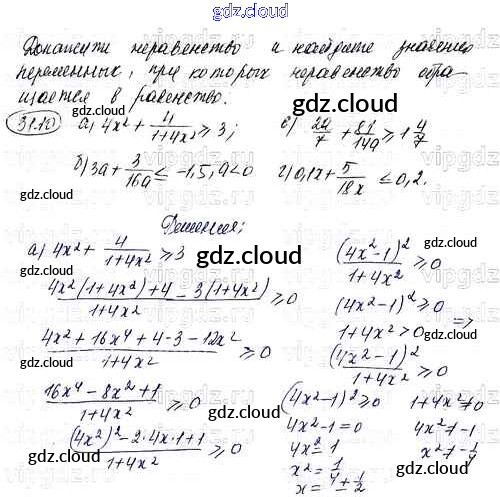 gdz.cloud
Докажите неравенство и найдите значения
переменных, при которых неравенство обра
щается в равенство.
31.10 а) 4x² + 4/(1+4x²) ≥ 3; в) 2a/7 + 81/14a ≥ 1 4/7
б) 3a + 3/16a ≤ -1,5, a<0 г) 0,1x + 5/18x ≤ 0,2.
Решения:
а) 4x² + 4/(1+4x²) ≥ 3
(4x²(1+4x²)+4-3(1+4x²))/(1+4x²) ≥ 0
(4x²+16x⁴+4-3-12x²)/(1+4x²) ≥ 0
(16x⁴-8x²+1)/(1+4x²) ≥ 0
((4x²)²-2·4x·1+1)/(1+4x²) ≥ 0
(4x²-1)²/(1+4x²) ≥ 0
(4x²-1)² ≥ 0
1+4x² > 0 =>
(4x²-1)²/(1+4x²) ≥ 0
(4x²-1)² ≥ 0 1+4x² ≠ 0
4x²-1=0 4x² ≠ -1
4x² = 1 x² ≠ -1/4
x² = 1/4
x = ± 1/2